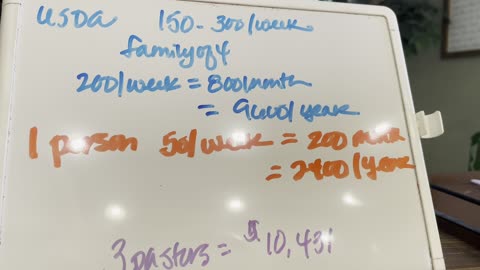 USDA 150-300/week
family of 4
200/week = 800/month
= 9600/year
1 person 50/week = 200
= 2400/year
3 pastors = $10,431